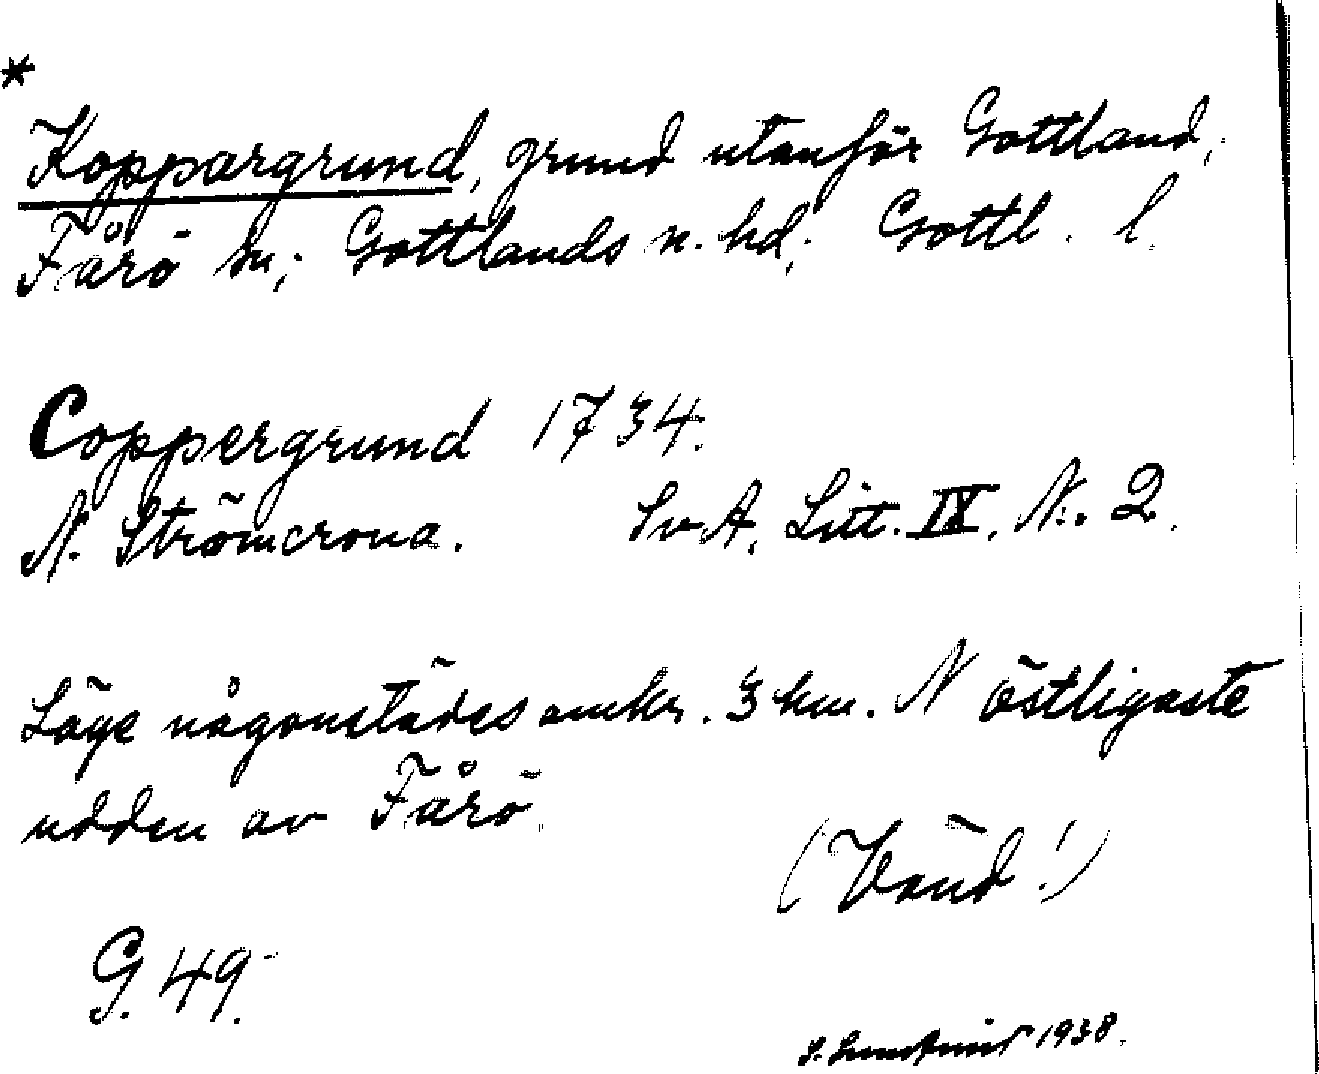 *
Koppargrund, grund utanför Gottland,
Fårö sn; Gottlands n. hd; Gottl. l.
Coppergrund 1734.
N. Strömcrona. SvA, Litt. IX, N:. 2.
Läge någonstädes omkr. 3 km. N östligaste
udden av Fårö.
(Vänd!)
G. 49.
1938.